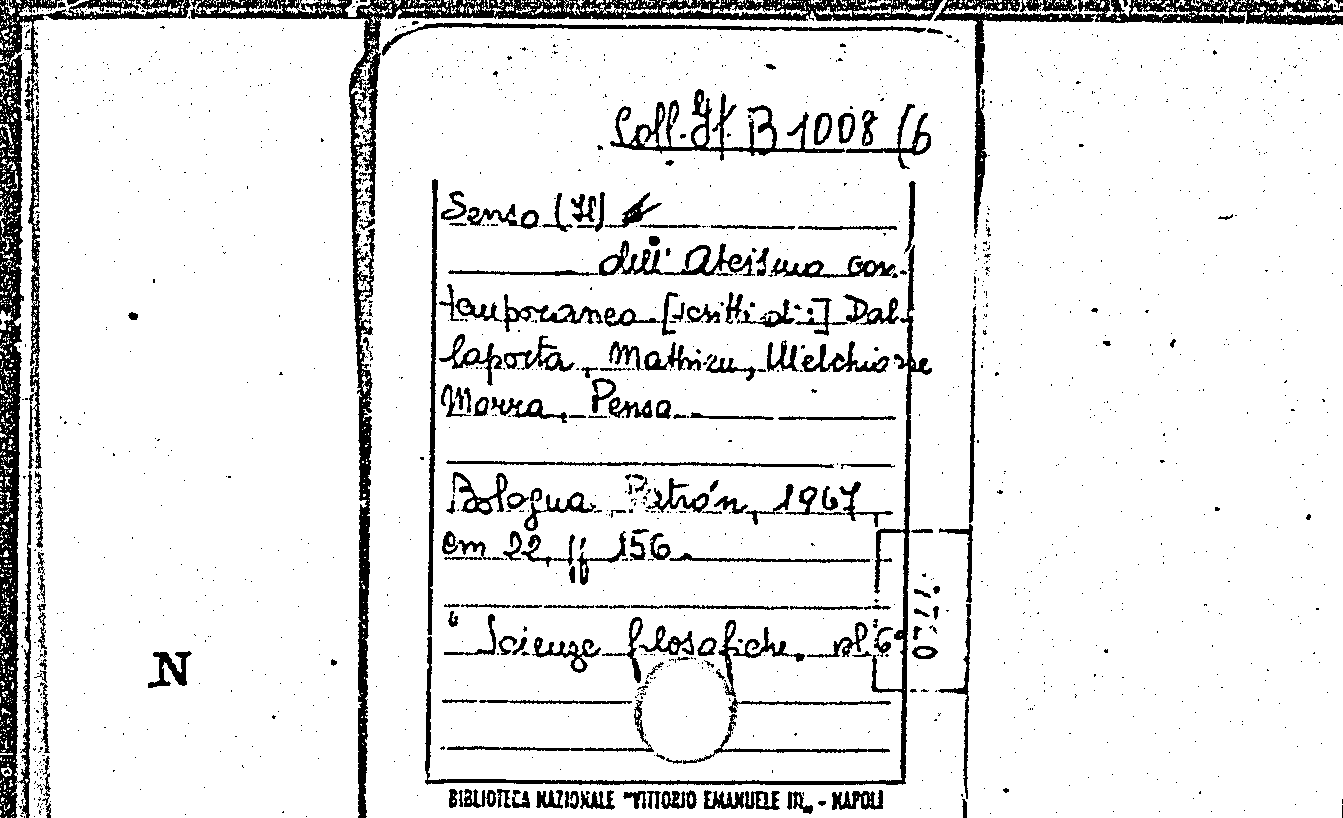 Coll. It. B 1008 (6
Senso (Il)
dell' Ateismo con-
temporaneo [scritti di:] Dal-
laporta, Mathieu, Melchiorre
Morra, Pensa
Bologna Pàtron, 1967
cm 22, pp 156.
" Scienze filosofiche. vl 6"
N
BIBLIOTECA NAZIONALE "VITTORIO EMANUELE III" - NAPOLI